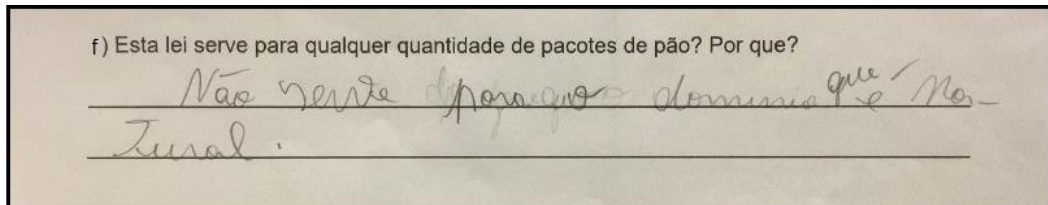 f) Esta lei serve para qualquer quantidade de pacotes de pão? Por que?
Não serve para o domínio que é Na-
tural.